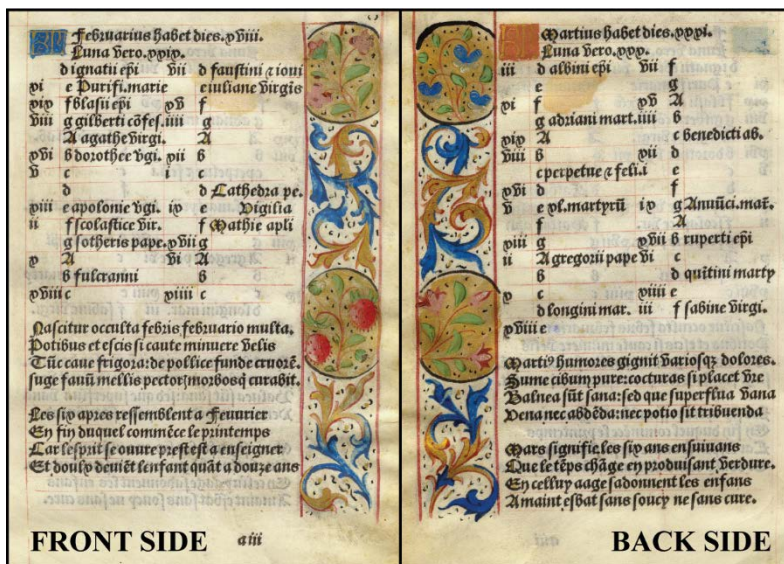 Februarius habet dies.xviii.
Luna vero.xxix.
d ignatii epi vii d faustini ⁊ ioui
xi e Purifi.marie e iuliane virgis
xix f blasii epi xv f
viii g gilberti cōfes. iiii g
A agathe virgi. A
xvi b dorothee vgi. xii b
v c i c
d d Cathedra pe.
xiii e apolonie vgi. ix e Vigilia
ii f scolastice vir. f Mathie apli
g sotheris pape. xvii g
x A vi A
b fulcranni b
xviii c xiiii c
Nascitur occulta febris februario multa.
Potibus et escis si caute minuere velis
Tūc caue frigora:de pollice funde cruorē.
suge fauū mellis pectorꝭ morbosqꝫ curabit.
Les six apres ressemblent a Feurier
En fin duquel commēce le printemps
Car lesprit se ouure prest est a enseigner
Et doulx deuiēt lenfant quāt a douze ans
FRONT SIDE
a iii
Martius habet dies.xxxi.
Luna vero.xxx.
iii d albini epi vii f
e g
xi f xv A
g adriani mart. iiii b
xix A c benedicti ab.
viii b xii d
c perpetue ⁊ feli. i e
xvi d f
v e xl.martyrū ix g Anūci.mar.
f A
xiii g xvii b ruperti epi
ii A gregorii pape vi c
b d quītini marty
x c xiiii e
d longini mar. iii f sabine virgi.
xviii e
Martiꝰ humores gignit variosqꝫ dolores.
Sume cibum pure:cocturas si placet vre
Balnea sūt sana:sed que superflua vana
Vena nec abdēda:nec potio sit tribuenda
Mars signifie les six ans ensuiuans
Que le tēps chāge en produisant verdure.
En celluy aage sadonnent les enfans
A maint esbat sans soucy ne sans cure.
BACK SIDE